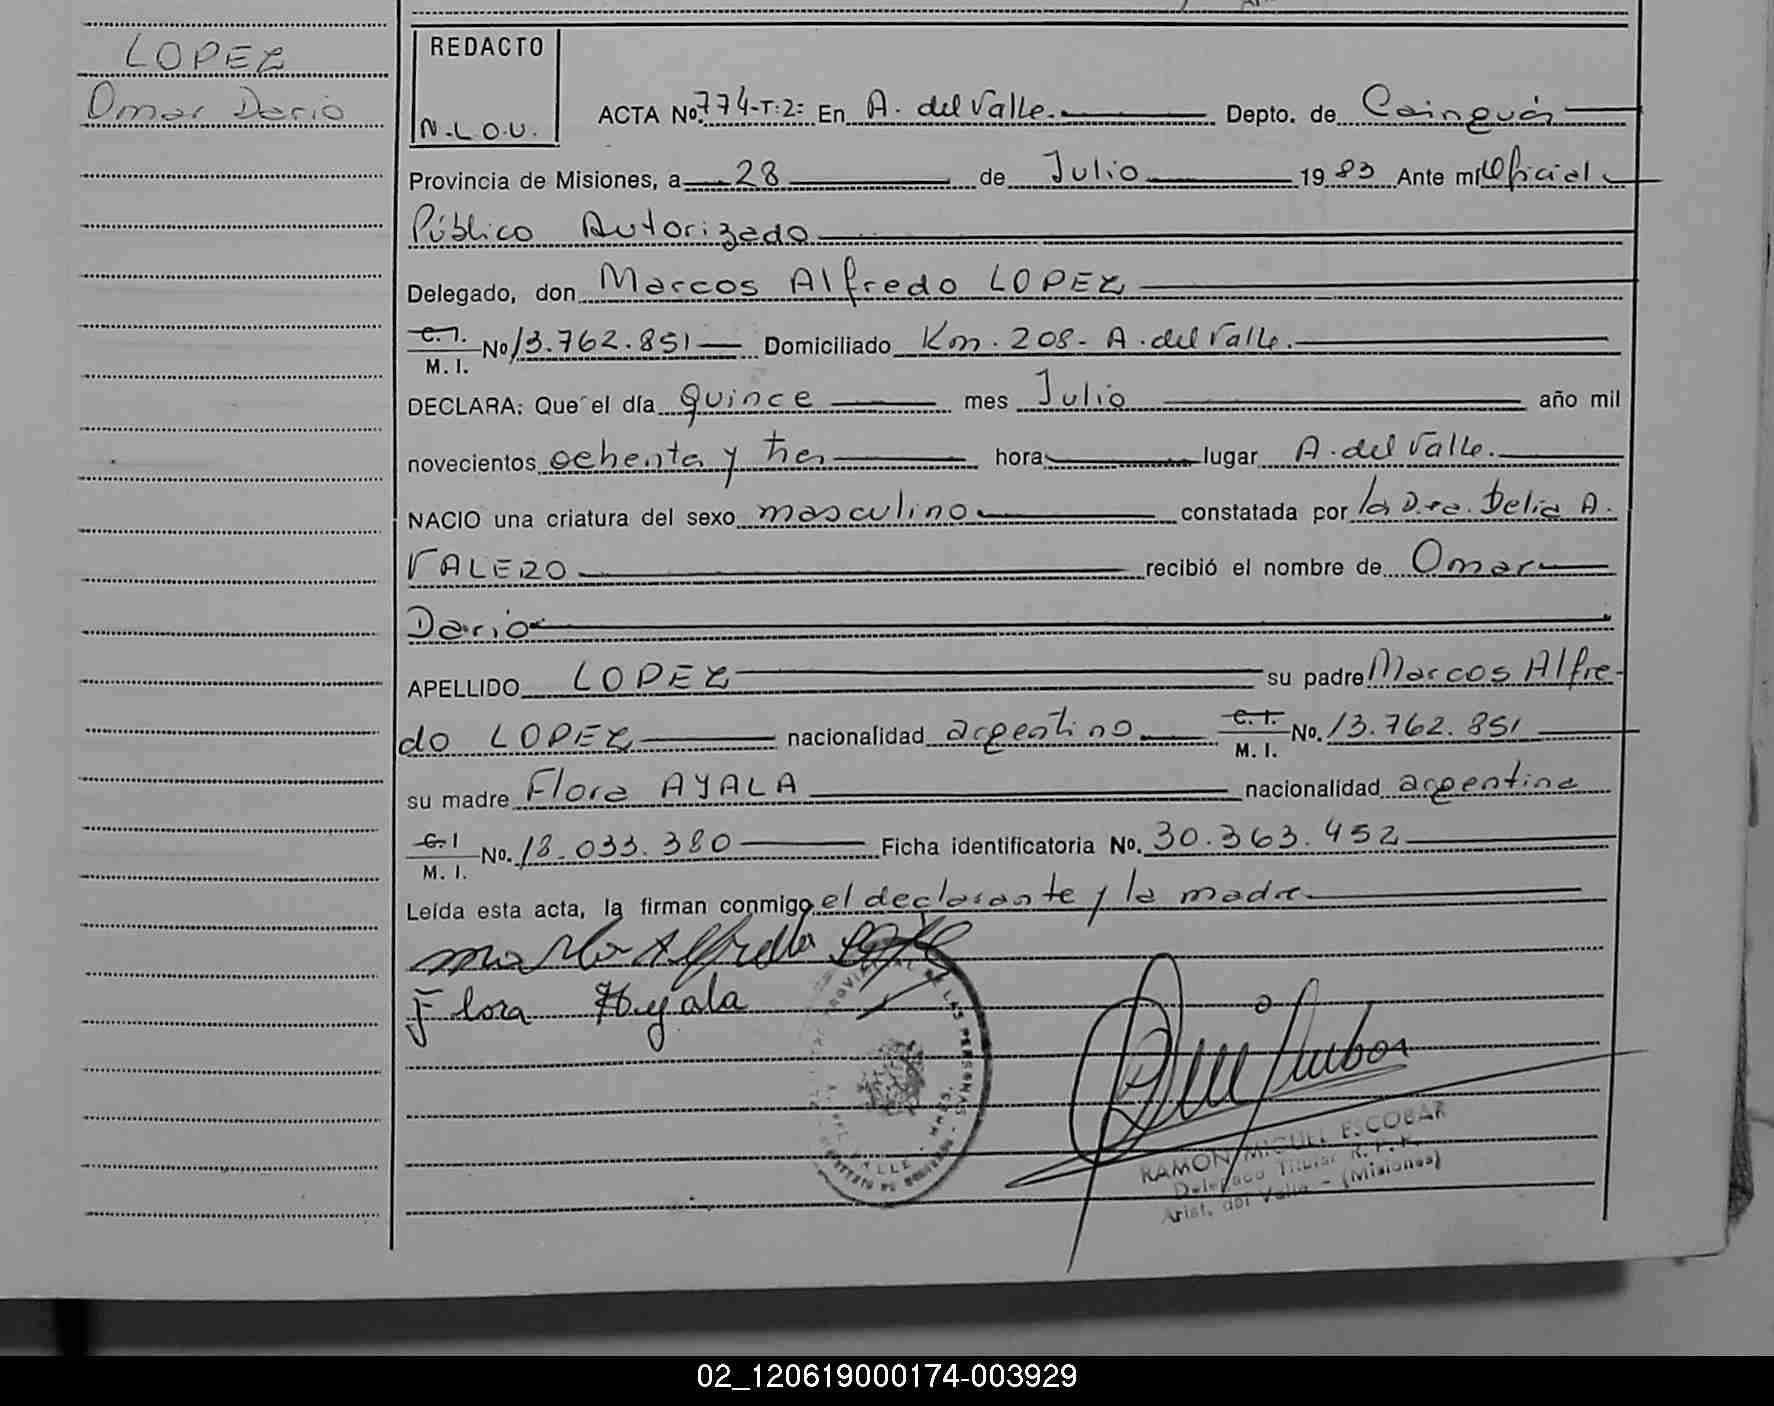 LOPEZ
Omar Dario
REDACTO
N.L.O.U.
ACTA No. 774-T:2: En A. del Valle. Depto. de Cainguás
Provincia de Misiones, a 28 de Julio 1983 Ante mí Oficial
Público Autorizado
Delegado, don Marcos Alfredo LOPEZ
C.I. M.I. No 13.762.851 Domiciliado Km. 208- A. del Valle.
DECLARA: Que el día quince mes Julio año mil
novecientos ochenta y tres hora lugar A. del Valle.
NACIO una criatura del sexo masculino constatada por la Dra. Delia A.
VALERO recibió el nombre de Omar
Dario
APELLIDO LOPEZ su padre Marcos Alfre-
do LOPEZ nacionalidad argentino C.I. M.I. No. 13.762.851
su madre Flora AYALA nacionalidad argentina
C.I M.I. No. 18.033.380 Ficha identificatoria No. 30.363.452
Leída esta acta, la firman conmigo el declarante y la madre
Flora Ayala
PROVINCIAL DE LAS PERSONAS
DEL VALLE
RAMON MIGUEL ESCOBAR
Delegado Titular R.P.P.
Arist. del Valle - (Misiones)
02_120619000174-003929